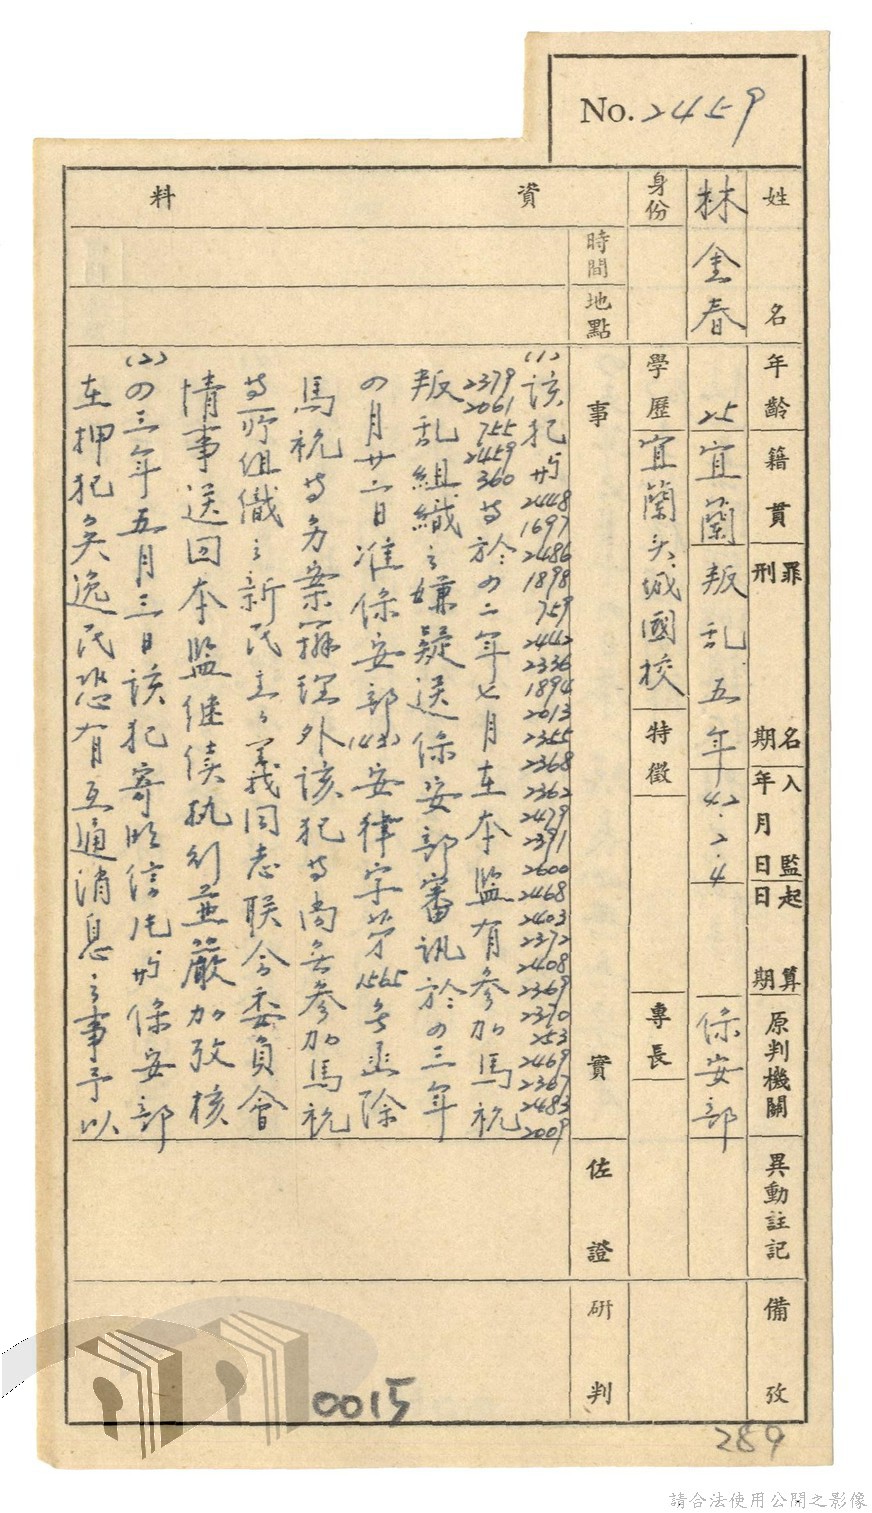 No. 2459
姓名
林金春
年齡
25
籍貫
宜蘭
罪名刑期
叛乱五年
入監年月日
42.2.4
起算日期
原判機關
保安部
異動註記
備攷
身份
學歷
宜蘭头城國校
特徵
專長
資料
時間
地點
事實
(1)該犯与2448 1697 2486 1898 759 2442 2336 1894 2013 2355 2368 2362 2479 2391 2600 2468 2403 2372 2408 2369 2390 253 2469 2367 2483 2009
2379 2061 755 2459 360等於四二年七月在本監有參加馬祝
叛乱組織之嫌疑送保安部審訊於四三年
四月廿二日准保安部(43)安律字第1565号函除
馬祝等另案辦理外該犯等尚無參加馬祝
等所組織之新民主主義同志联合委員會
情事送回本監继续执行並嚴加攷核
(2)四三年五月三日該犯寄明信片与保安部
在押犯吴逸民恐有互通消息之事予以
佐證
研判
0015
289
請合法使用公開之影像